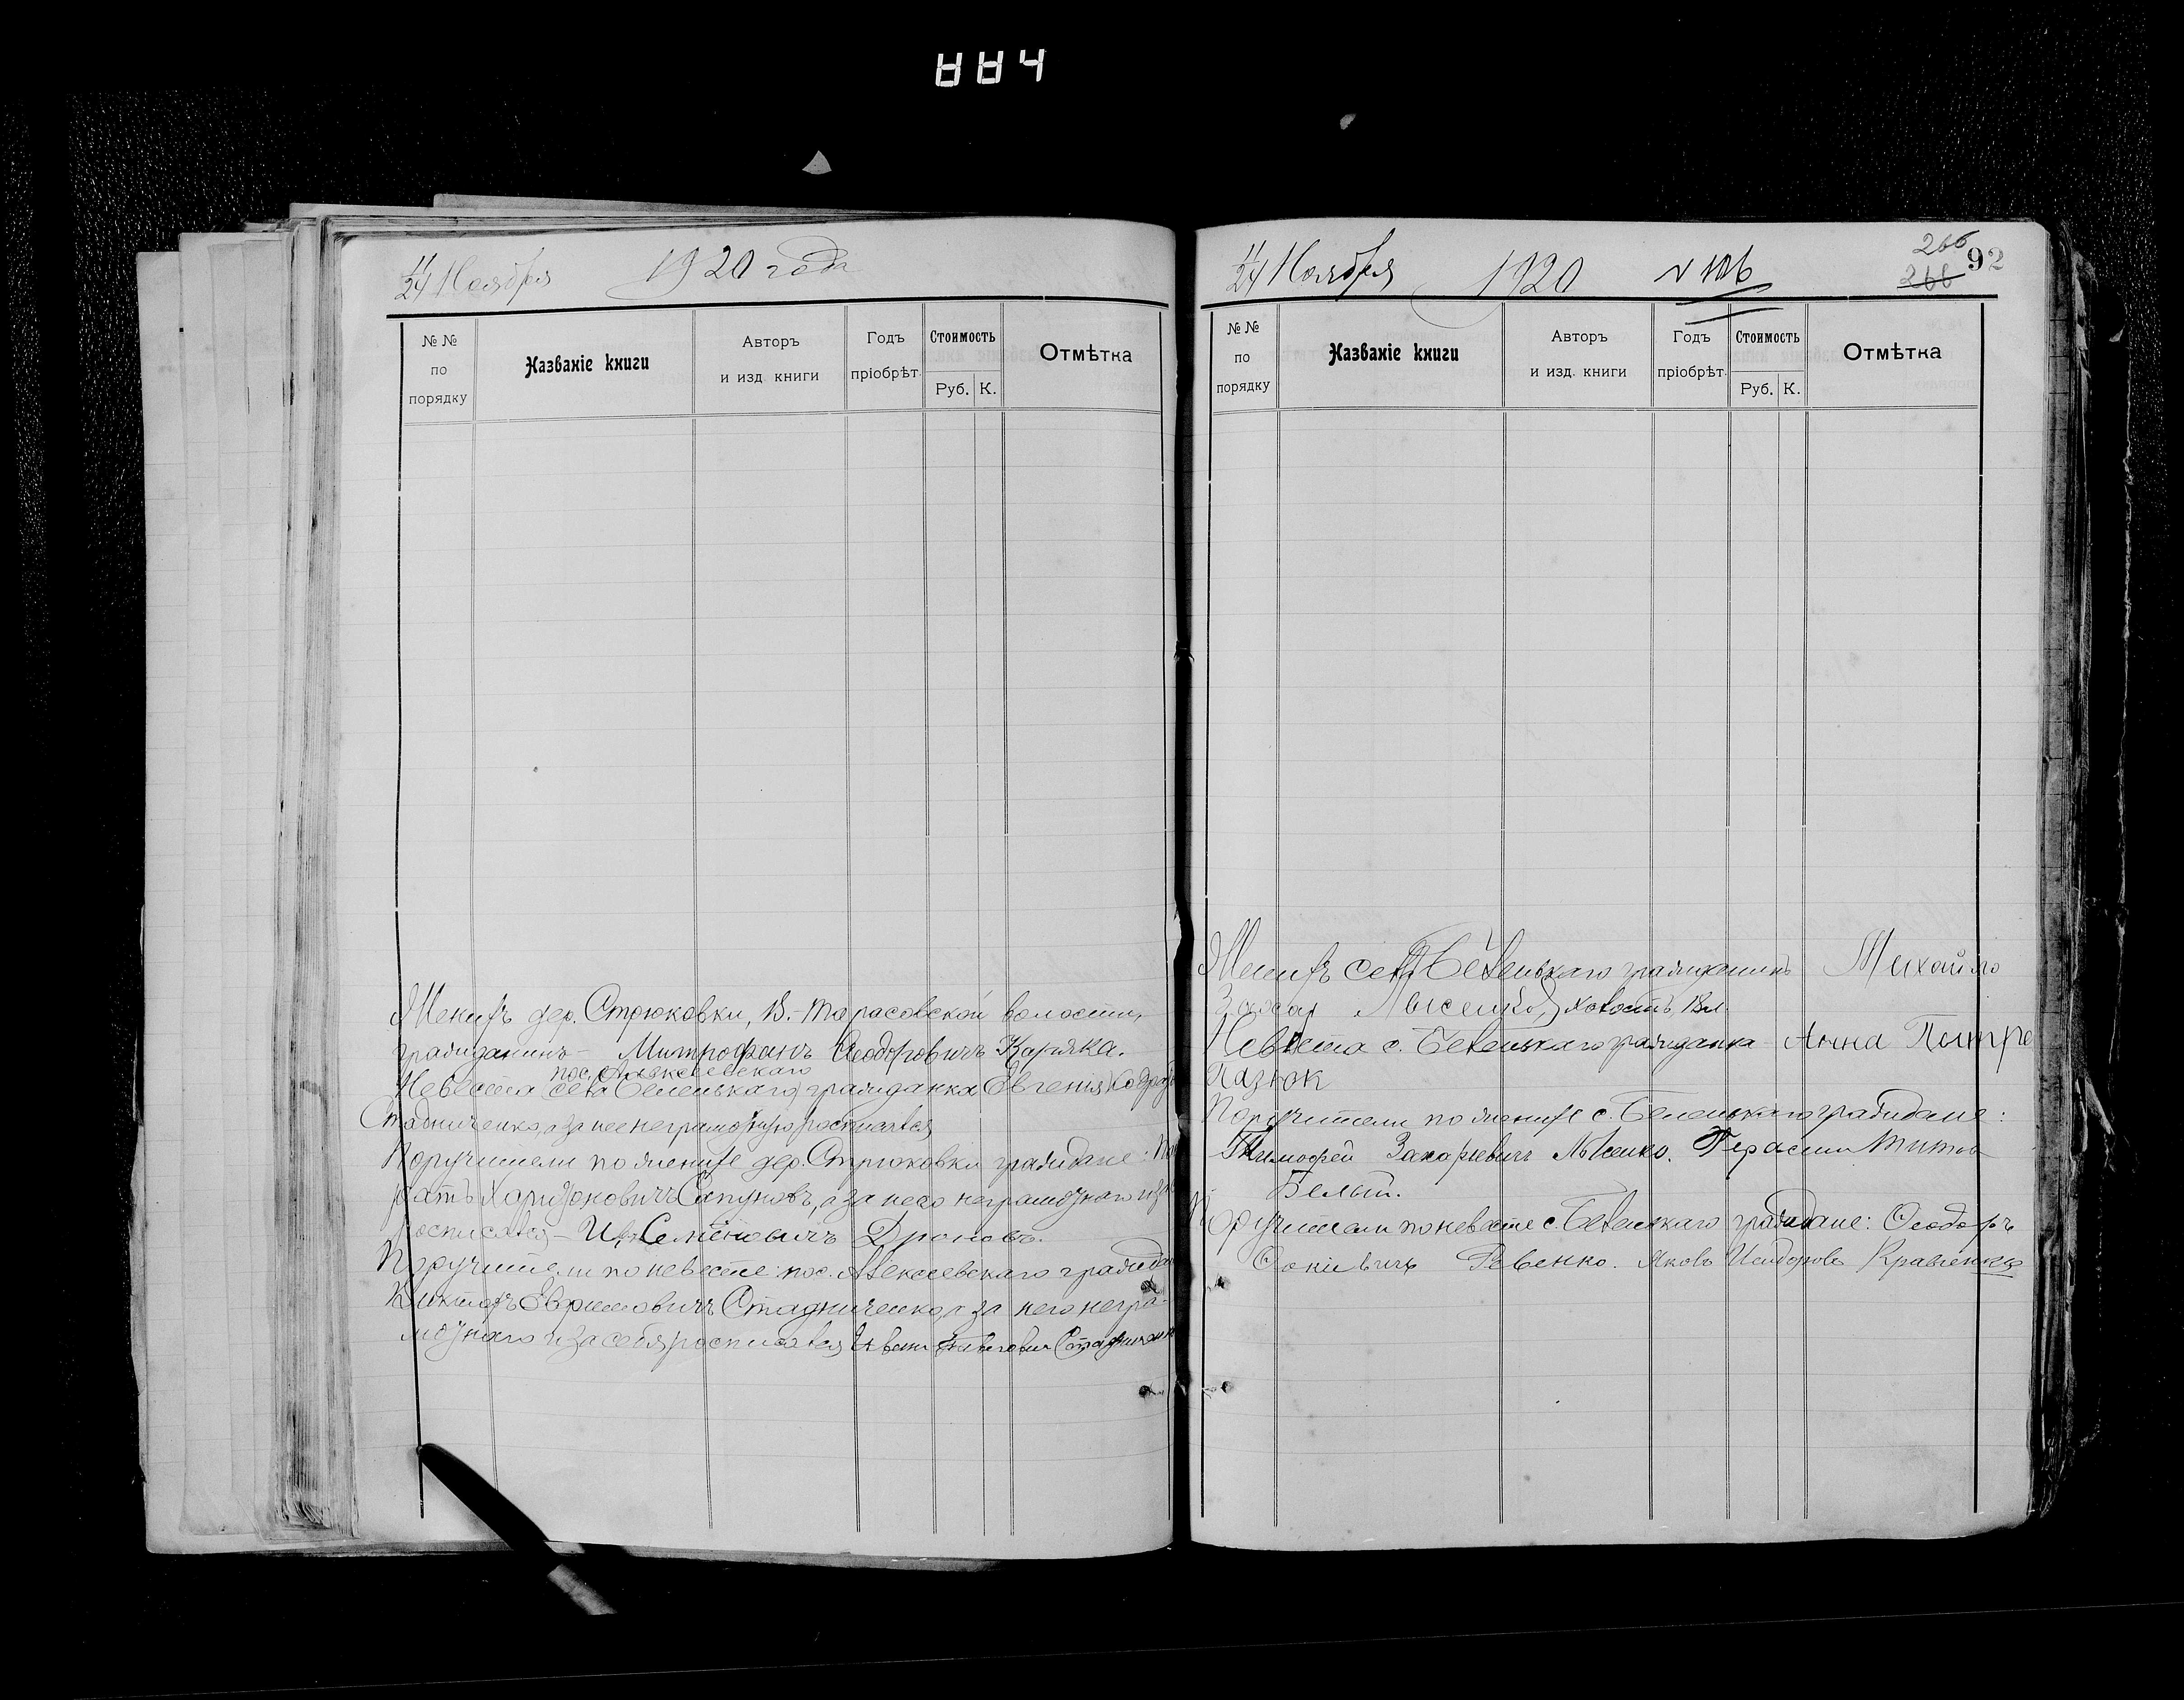 884
11/24 Ноября 1920 года
№ №
по
порядку
Названіе книги
Авторъ
и изд. книги
Годъ
пріобрѣт.
Стоимость
Руб. К.
Отмѣтка
Женихъ дер. Стрюковки, В.-Тарасовской волости,
гражданинъ - Митрофанъ Ѳеодоровичъ Каряка.
пос. Алексеевскаго
Невеста села Беленькаго гражданка Евгенія
Стадниченко, а за нее неграмотную
Поручители по женихе дер. Стрюковки граждане:
Харитоновичъ Сапуновъ, а за него неграмотнаго
росписался - Ив. Семеновичъ Дроновъ.
Поручители по невесте: пос. Алексеевскаго
Викторъ Ефимовичъ Стадниченко, а за него негра-
мотнаго и за себя росписался Стадниченко
11/24 Ноября 1920 № 106
266
266
92
№ №
по
порядку
Названіе книги
Авторъ
и изд. книги
Годъ
пріобрѣт.
Стоимость
Руб. К.
Отмѣтка
Женихъ села Беленькаго гражданинъ Михайло
Захар Лысенко, холостъ 18 л.
Невеста с. Беленькаго гражданка Анна Петре
Пазюк
Поручители по женихе с. Беленькаго граждане:
Тимофей Захарьевичъ Лысенко. Герасим Титов
Белый.
Поручители по невесте с. Беленькаго граждане: Ѳеодоръ
Ревенко. Яковъ Исидоровъ Кравченко